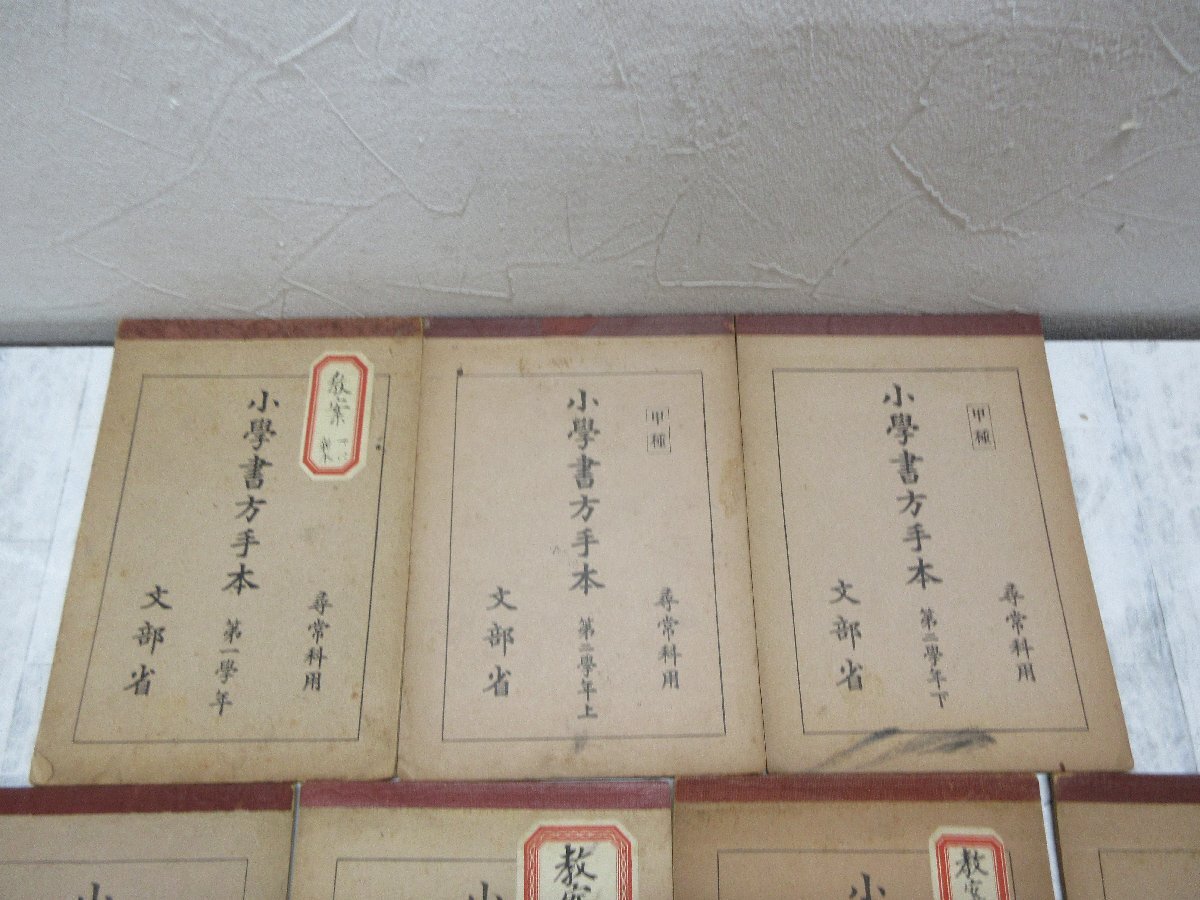 教案
小學書方手本
第一學年
尋常科用
文部省
甲種
小學書方手本
第二學年上
尋常科用
文部省
甲種
小學書方手本
第二學年下
尋常科用
文部省
小
教案
小
教案
小